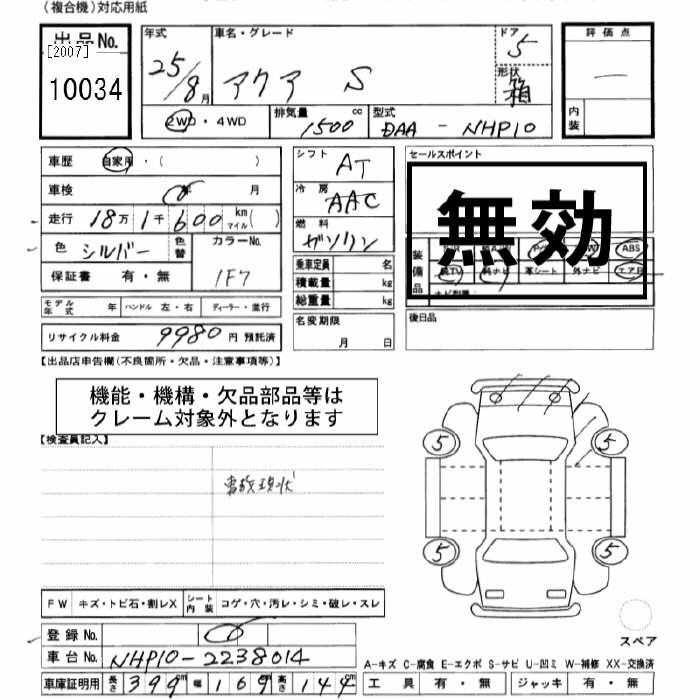 (複合機)対応用紙
出品No.
[2007]
10034
年式
25/8月
車名・グレード
アクア S
ドア
5
形状
箱
評価点
内装
2WD・4WD
排気量
1500cc
型式
DAA - NHP10
車歴 自家用・( )
車検 年 月
走行 18万1千600km マイル( )
色 シルバー
色替
カラーNo.
1F7
保証書 有・無
モデル年式 年
ハンドル 左・右
ディーラー・並行
リサイクル料金 9980円 預託済
シフト
AT
冷房
AAC
燃料
ガソリン
乗車定員 名
積載量 kg
総重量 kg
名変期限
月 日
セールスポイント
無効
装備品
ABS
革シート
外ナビ
エアB
後日品
【出品店申告欄(不良箇所・欠品・注意事項等)】
機能・機構・欠品部品等は
クレーム対象外となります
【検査員記入】
事故現状
5
5
5
5
スペア
FW キズ・トビ石・割レX
シート内装 コゲ・穴・汚レ・シミ・破レ・スレ
登録No.
車台No. NHP10-2238014
車庫証明用 長さ 399cm 幅 169cm 高さ 144cm
A-キズ C-腐食 E-エクボ S-サビ U-凹ミ W-補修 XX-交換済
工具 有・無
ジャッキ 有・無